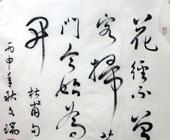 花徑不曾
客掃蓬
門今始為
开
杜甫句
丙申年秋文瑞